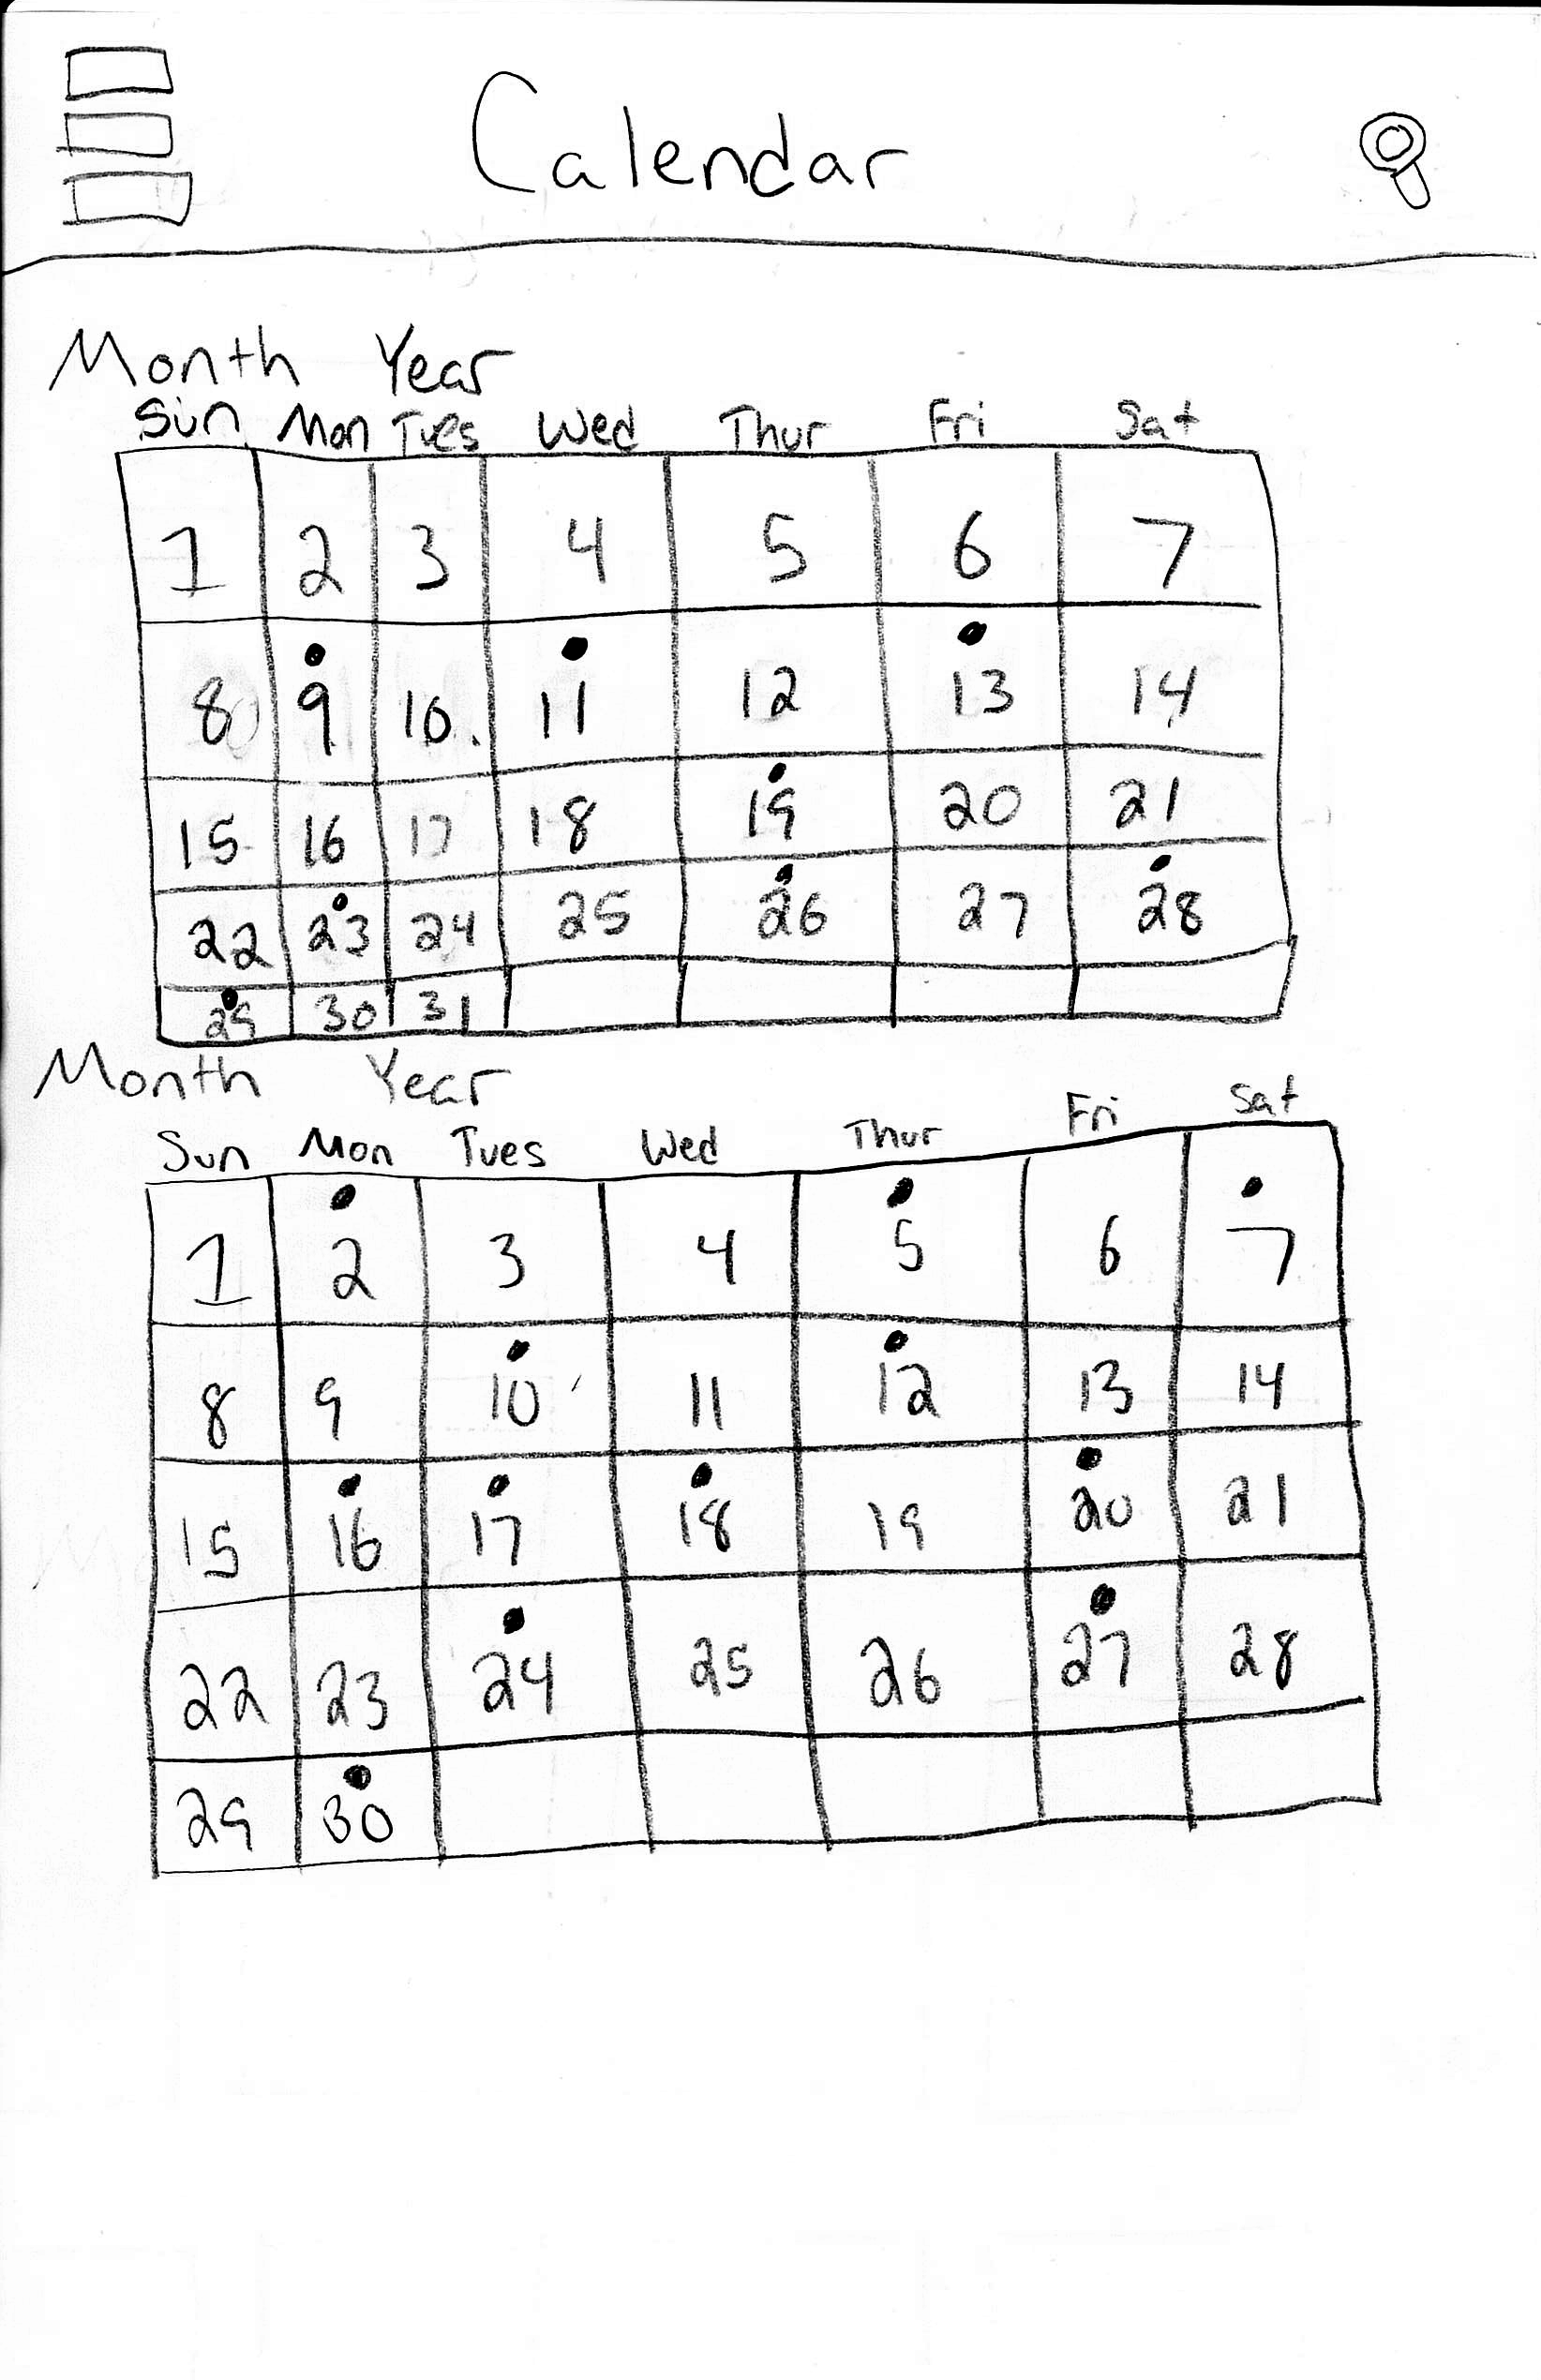 Calendar
Month Year
Sun Mon Tues Wed Thur Fri Sat
1 2 3 4 5 6 7
8 9 10 11 12 13 14
15 16 17 18 19 20 21
22 23 24 25 26 27 28
29 30 31
Month Year
Sun Mon Tues Wed Thur Fri Sat
1 2 3 4 5 6 7
8 9 10 11 12 13 14
15 16 17 18 19 20 21
22 23 24 25 26 27 28
29 30